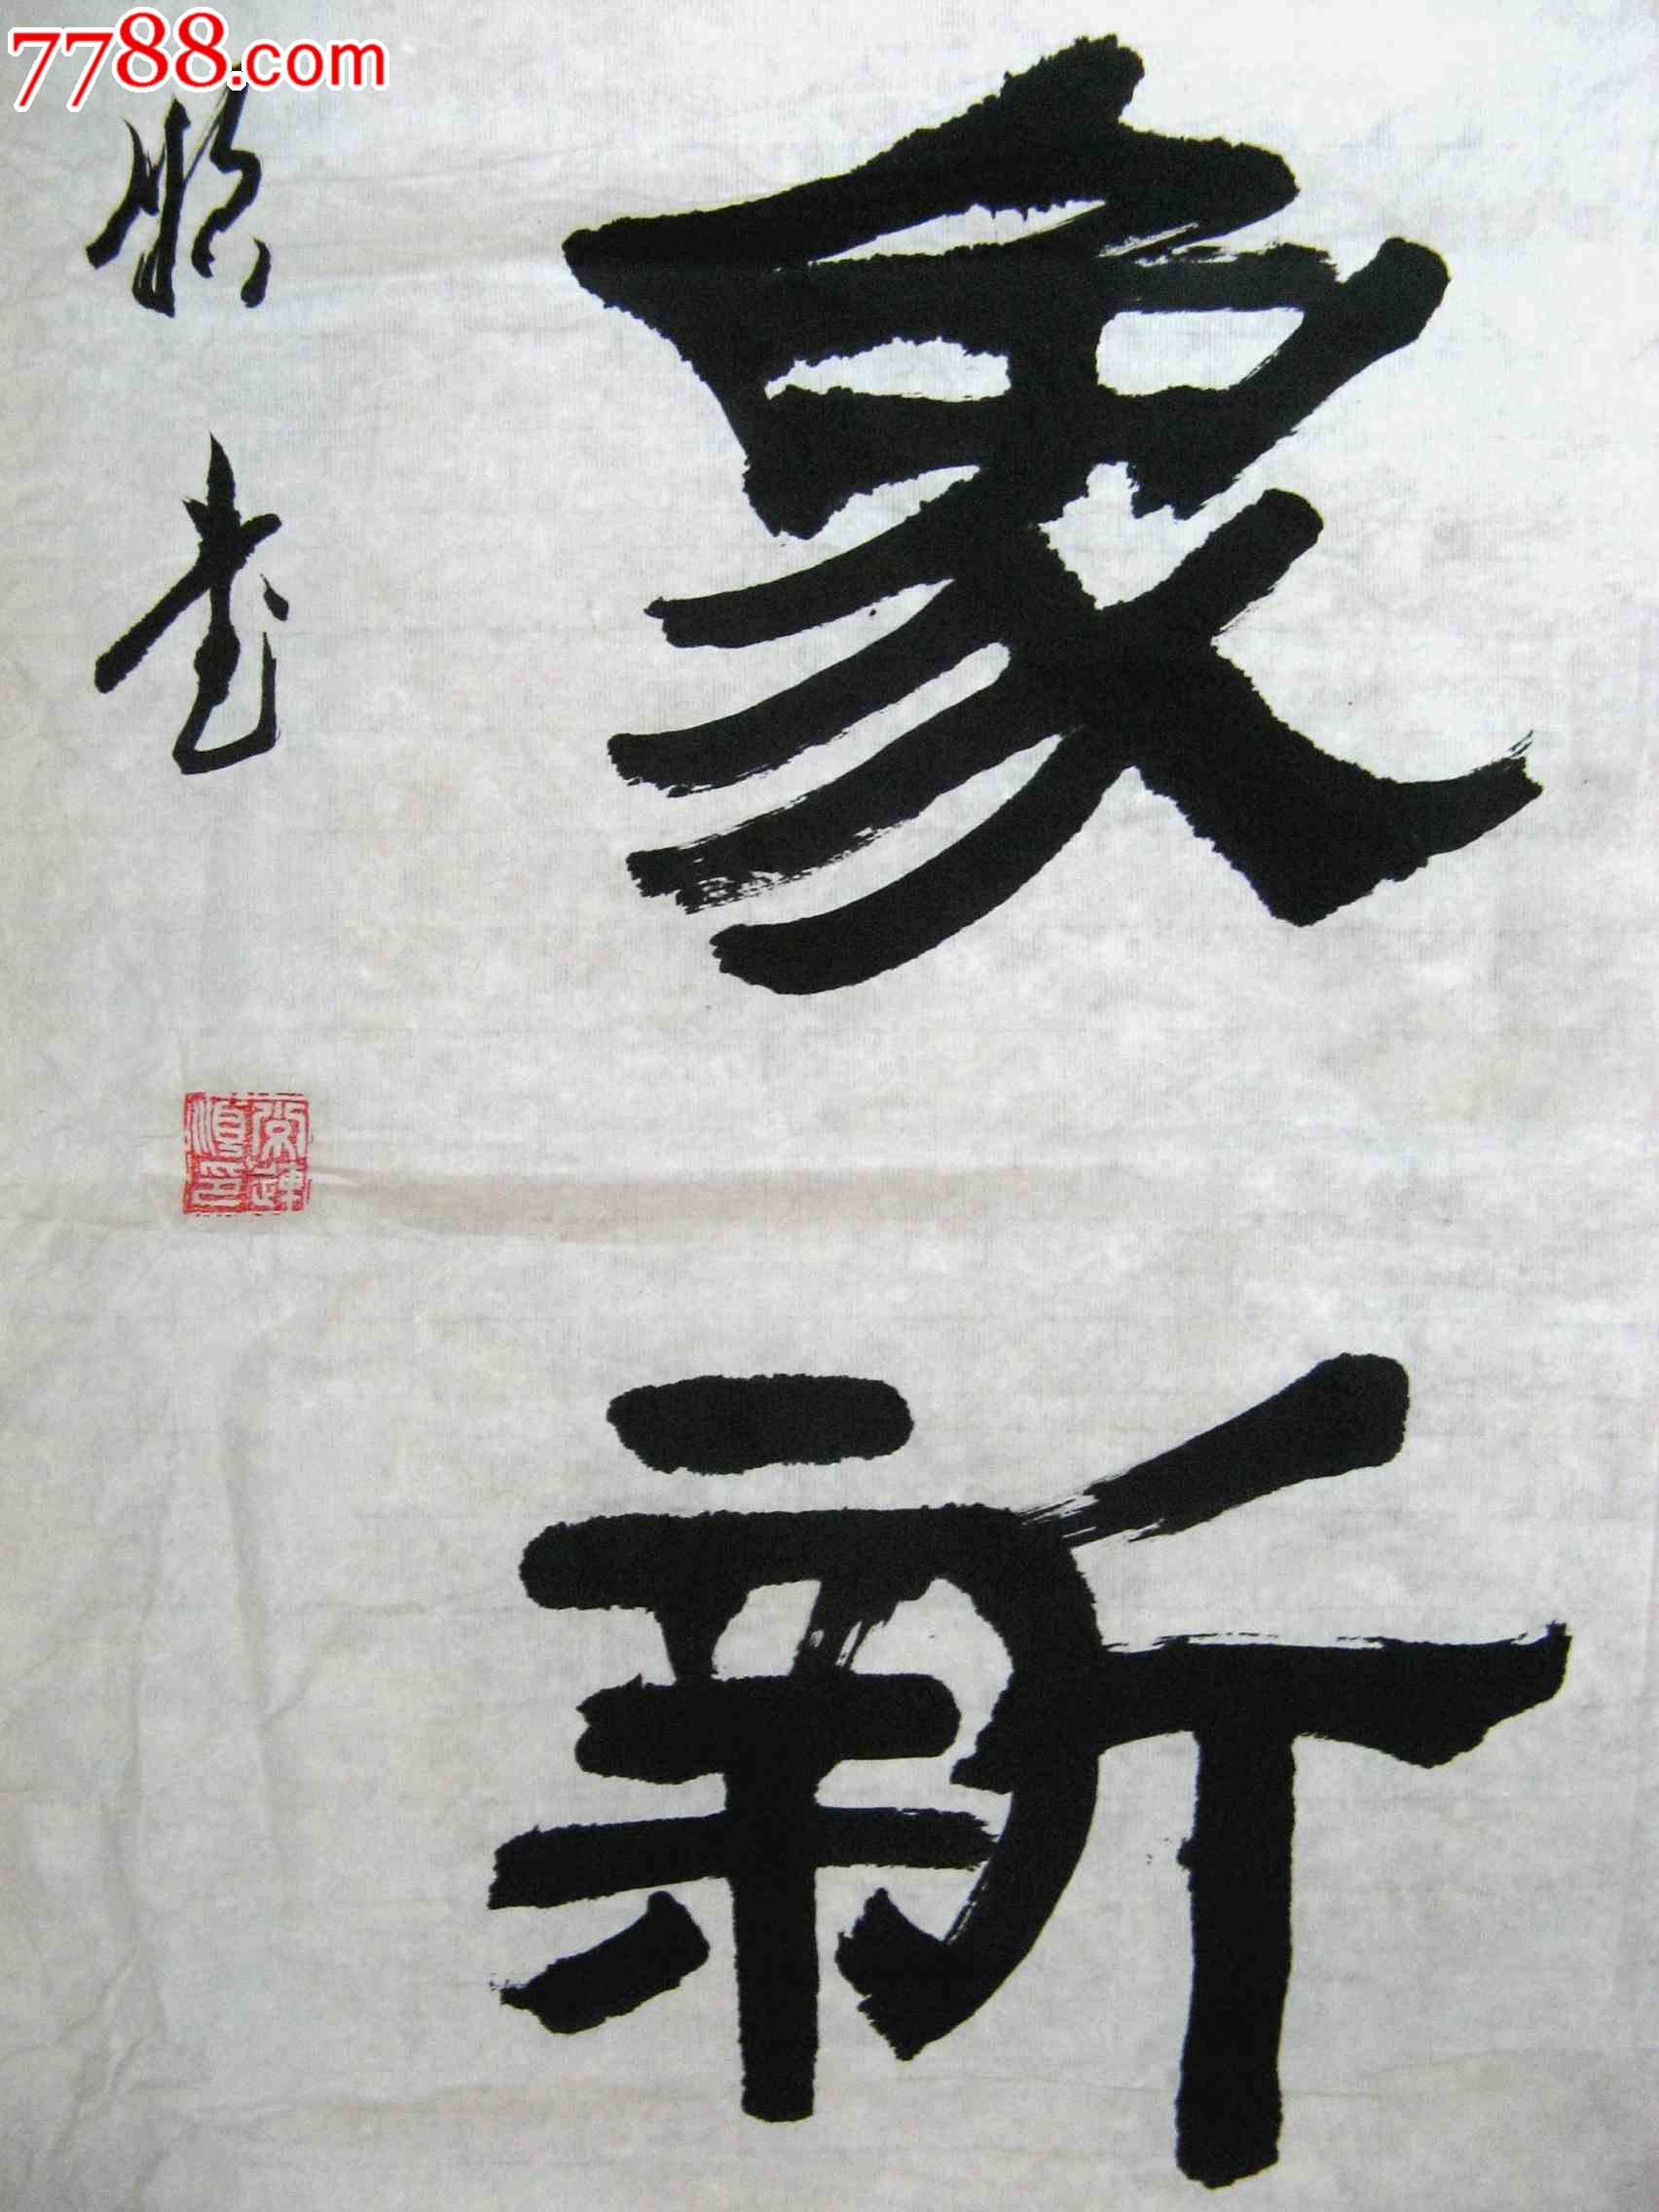 7788.com
象新
顺书